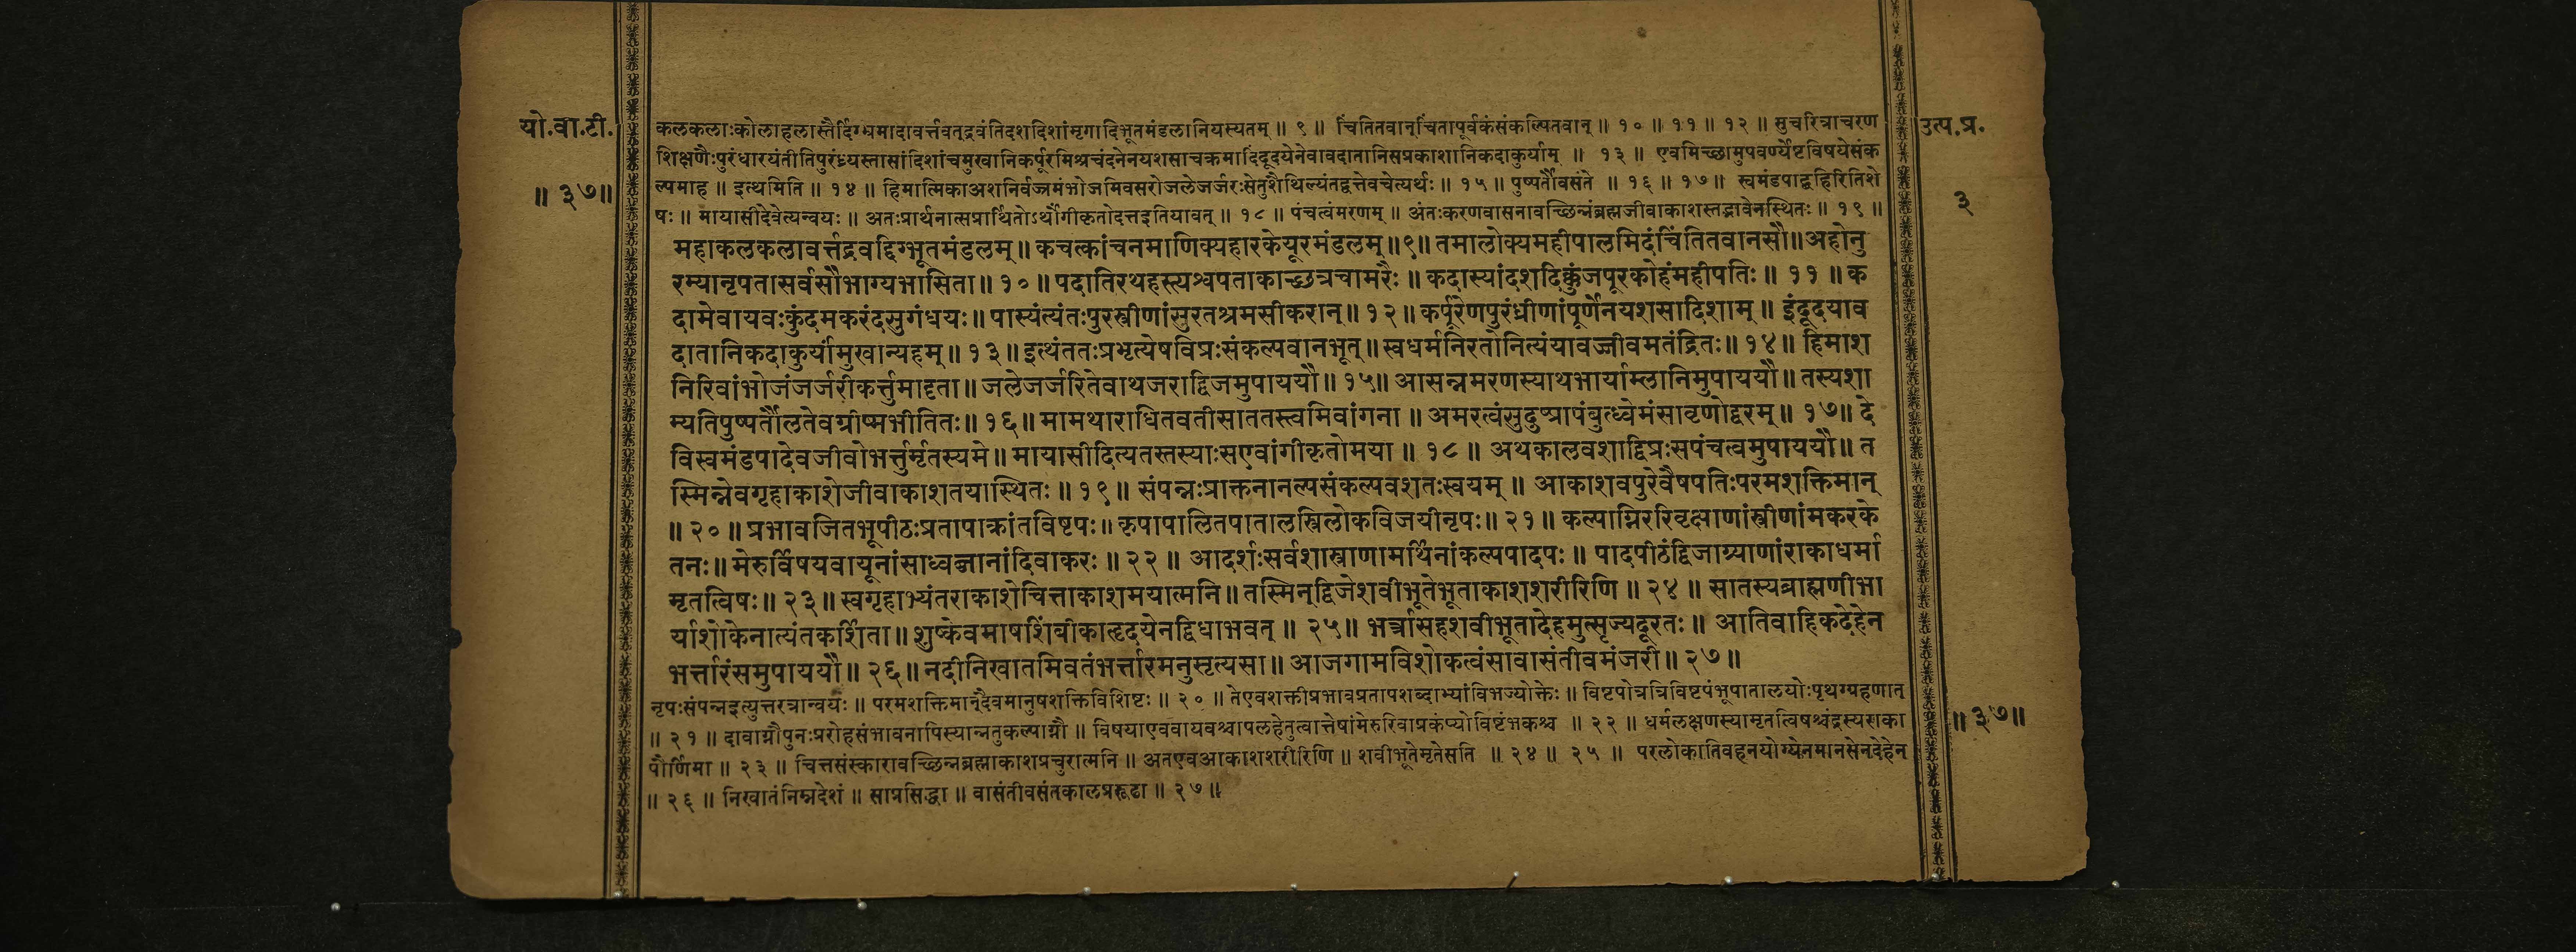 यो.वा.टी.
॥ ३७॥
उत्प.प्र.
३
कलकलाःकोलाहलास्तैर्दिग्भ्यमादावर्त्तवत्द्रवंतिदशदिशांमृगादिभूतमंडलानियस्यतम् ॥ ९ ॥ चिंतितवान्चिंतापूर्वकंसंकल्पितवान् ॥ १० ॥ ११ ॥ १२ ॥ सुचरित्राचरण
शिक्षणैःपुरंधारयंतीतिपुरंध्र्यस्तासांदिशांचमुखानिकर्पूरमिश्रचंदनेनयशसाचकमादिंदूदयेनेवावदातानिसप्रकाशानिकदाकुर्याम् ॥ १३ ॥ एवमिच्छामुपवर्ण्येष्टविषयेसंक
ल्पमाह ॥ इत्थमिति ॥ १४ ॥ हिमात्मिकाअशनिर्वज्रमंभोजमिवसरोजलेजर्जरःसेतुशैथिल्यंतद्वत्तेवचेत्यर्थः ॥ १५ ॥ पुष्पर्तौवसंते ॥ १६ ॥ १७ ॥ स्वमंडपाद्बहिरितिशे
षः ॥ मायासीदेवेत्यन्वयः ॥ अतःप्रार्थनात्सप्रार्थितोऽर्थोंगीकृतोदत्तइतियावत् ॥ १८ ॥ पंचत्वंमरणम् ॥ अंतःकरणवासनावच्छिन्नंब्रह्मजीवाकाशस्तद्भावेनस्थितः ॥ १९ ॥
महाकलकलावर्त्तद्रवद्दिग्भूतमंडलम् ॥ कचत्कांचनमाणिक्यहारकेयूरमंडलम् ॥९॥ तमालोक्यमहीपालमिदंचिंतितवानसौ॥अहोनु
रम्यानृपतासर्वसौभाग्यभासिता॥ १० ॥ पदातिरथहस्त्यश्वपताकाच्छत्रचामरैः ॥ कदास्यांदशदिक्कुंजपूरकोहंमहीपतिः ॥ ११ ॥ क
दामेवायवःकुंदमकरंदसुगंधयः॥ पास्यंत्यंतःपुरस्त्रीणांसुरतश्रमसीकरान् ॥ १२ ॥ कर्पूरेणपुरंध्रीणांपूर्णेनयशसादिशाम् ॥ इंदूदयाव
दातानिकदाकुर्यांमुखान्यहम् ॥ १३ ॥ इत्थंततःप्रभृत्येषविप्रःसंकल्पवानभूत् ॥ स्वधर्मनिरतोनित्यंयावज्जीवमतंद्रितः॥ १४॥ हिमाश
निरिवांभोजंजर्जरीकर्त्तुमादृता॥ जलेजर्जरितेवाथजराद्विजमुपाययौ॥ १५॥ आसन्नमरणस्याथभार्याम्लानिमुपाययौ॥ तस्यशा
म्यतिपुष्पर्तौलतेवग्रीष्मभीतितः॥ १६॥ मामथाराधितवतीसाततस्त्वमिवांगना ॥ अमरत्वंसुदुष्प्रापंबुत्ध्वेमंसावृणोद्वरम् ॥ १७॥ दे
विस्वमंडपादेवजीवोभर्त्तुर्मृतस्यमे॥ मायासीदित्यतस्तस्याःसएवांगीकृतोमया ॥ १८ ॥ अथकालवशाद्विप्रःसपंचत्वमुपाययौ॥ त
स्मिन्नेवगृहाकाशेजीवाकाशतयास्थितः ॥ १९ ॥ संपन्नःप्राक्तनानल्पसंकल्पवशतःस्वयम् ॥ आकाशवपुरेवैषपतिःपरमशक्तिमान्
॥ २० ॥ प्रभावजितभूपीठःप्रतापाक्रांतविष्टपः॥ कृपापालितपातालस्त्रिलोकविजयीनृपः॥ २१ ॥ कल्पाग्निररिवृक्षाणांस्त्रीणांमकरके
तनः॥ मेरुर्विषयवायूनांसाध्वब्जानांदिवाकरः ॥ २२ ॥ आदर्शःसर्वशास्त्राणामर्थिनांकल्पपादपः ॥ पादपीठंद्विजाग्र्याणांराकाधर्मा
मृतत्विषः॥ २३ ॥ स्वगृहाभ्यंतराकाशेचित्ताकाशमयात्मनि॥ तस्मिन्द्विजेशवीभूतेभूताकाशशरीरिणि ॥ २४ ॥ सातस्यब्राह्मणीभा
र्याशोकेनात्यंतकर्शिता॥ शुष्केवमाषशिंबीकाहृदयेनद्विधाभवत् ॥ २५॥ भर्त्रासहशवीभूतादेहमुत्सृज्यदूरतः ॥ आतिवाहिकदेहेन
भर्त्तारंसमुपाययौ॥ २६ ॥ नदीनिखातमिवतंभर्त्तारमनुसृत्यसा॥ आजगामविशोकत्वंसावासंतीवमंजरी॥ २७॥
नृपःसंपन्नइत्युत्तरत्रान्वयः ॥ परमशक्तिमान्दैवमानुषशक्तिविशिष्टः ॥ २० ॥ तेएवशक्तीप्रभावप्रतापशब्दाभ्यांविभज्योक्तेः ॥ विष्टपोत्रत्रिविष्टपंभूपातालयोःपृथग्ग्रहणात्
॥ २१ ॥ दावाग्नौपुनःप्ररोहसंभावनापिस्यान्नतुकल्पाग्नौ ॥ विषयाएववायवश्चापलहेतुत्वात्तेषांमेरुरिवाप्रकंप्योविष्टंभकश्च ॥ २२ ॥ धर्मलक्षणस्यामृतत्विषश्चंद्रस्यराका
पौर्णिमा ॥ २३ ॥ चित्तसंस्कारावच्छिन्नब्रह्माकाशप्रचुरात्मनि ॥ अतएवआकाशशरीरिणि ॥ शवीभूतेमृतेसति ॥ २४ ॥ २५ ॥ परलोकातिवहनयोग्येनमानसेनदेहेन
॥ २६ ॥ निखातंनिम्नदेशं ॥ साप्रसिद्धा ॥ वासंतीवसंतकालप्ररूढा ॥ २७ ॥
॥ ३७॥